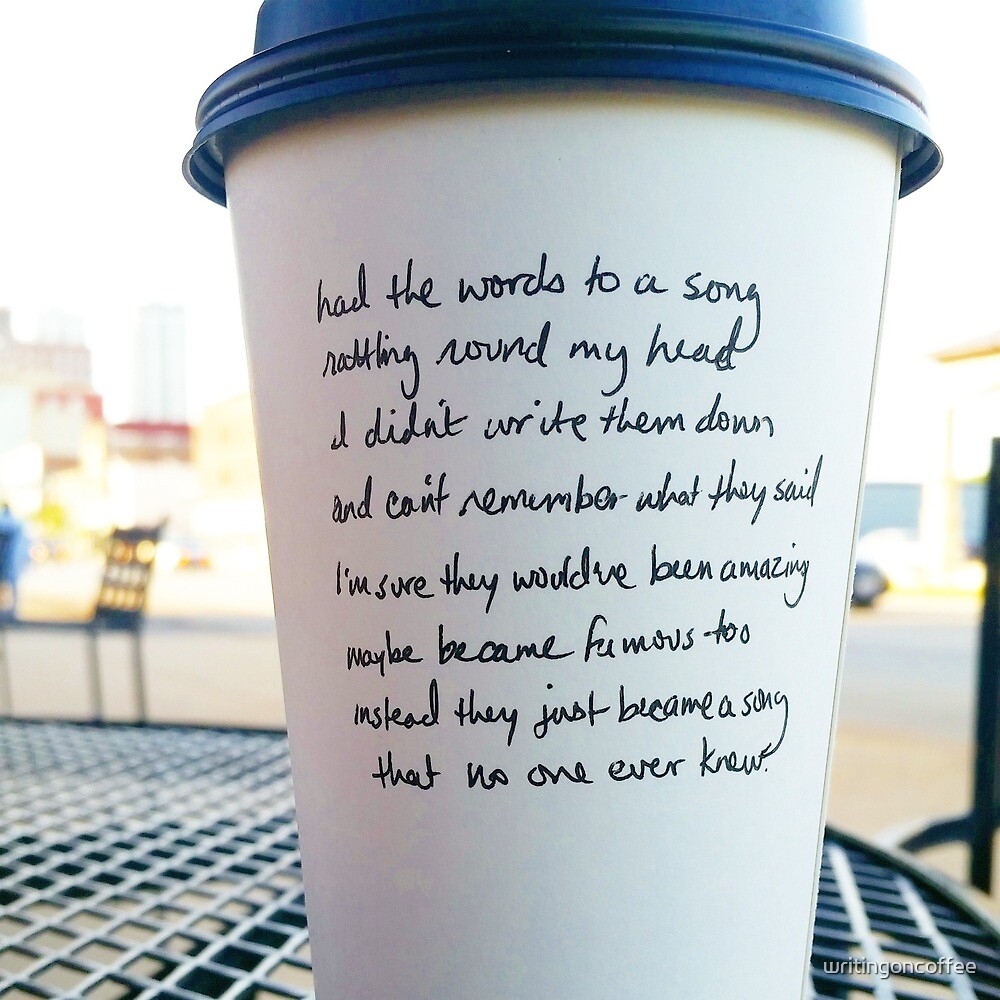 had the words to a song
rattling round my head
I didn't write them down
and can't remember what they said
I'm sure they would've been amazing
maybe became famous too
instead they just became a song
that no one ever knew.
writingoncoffee